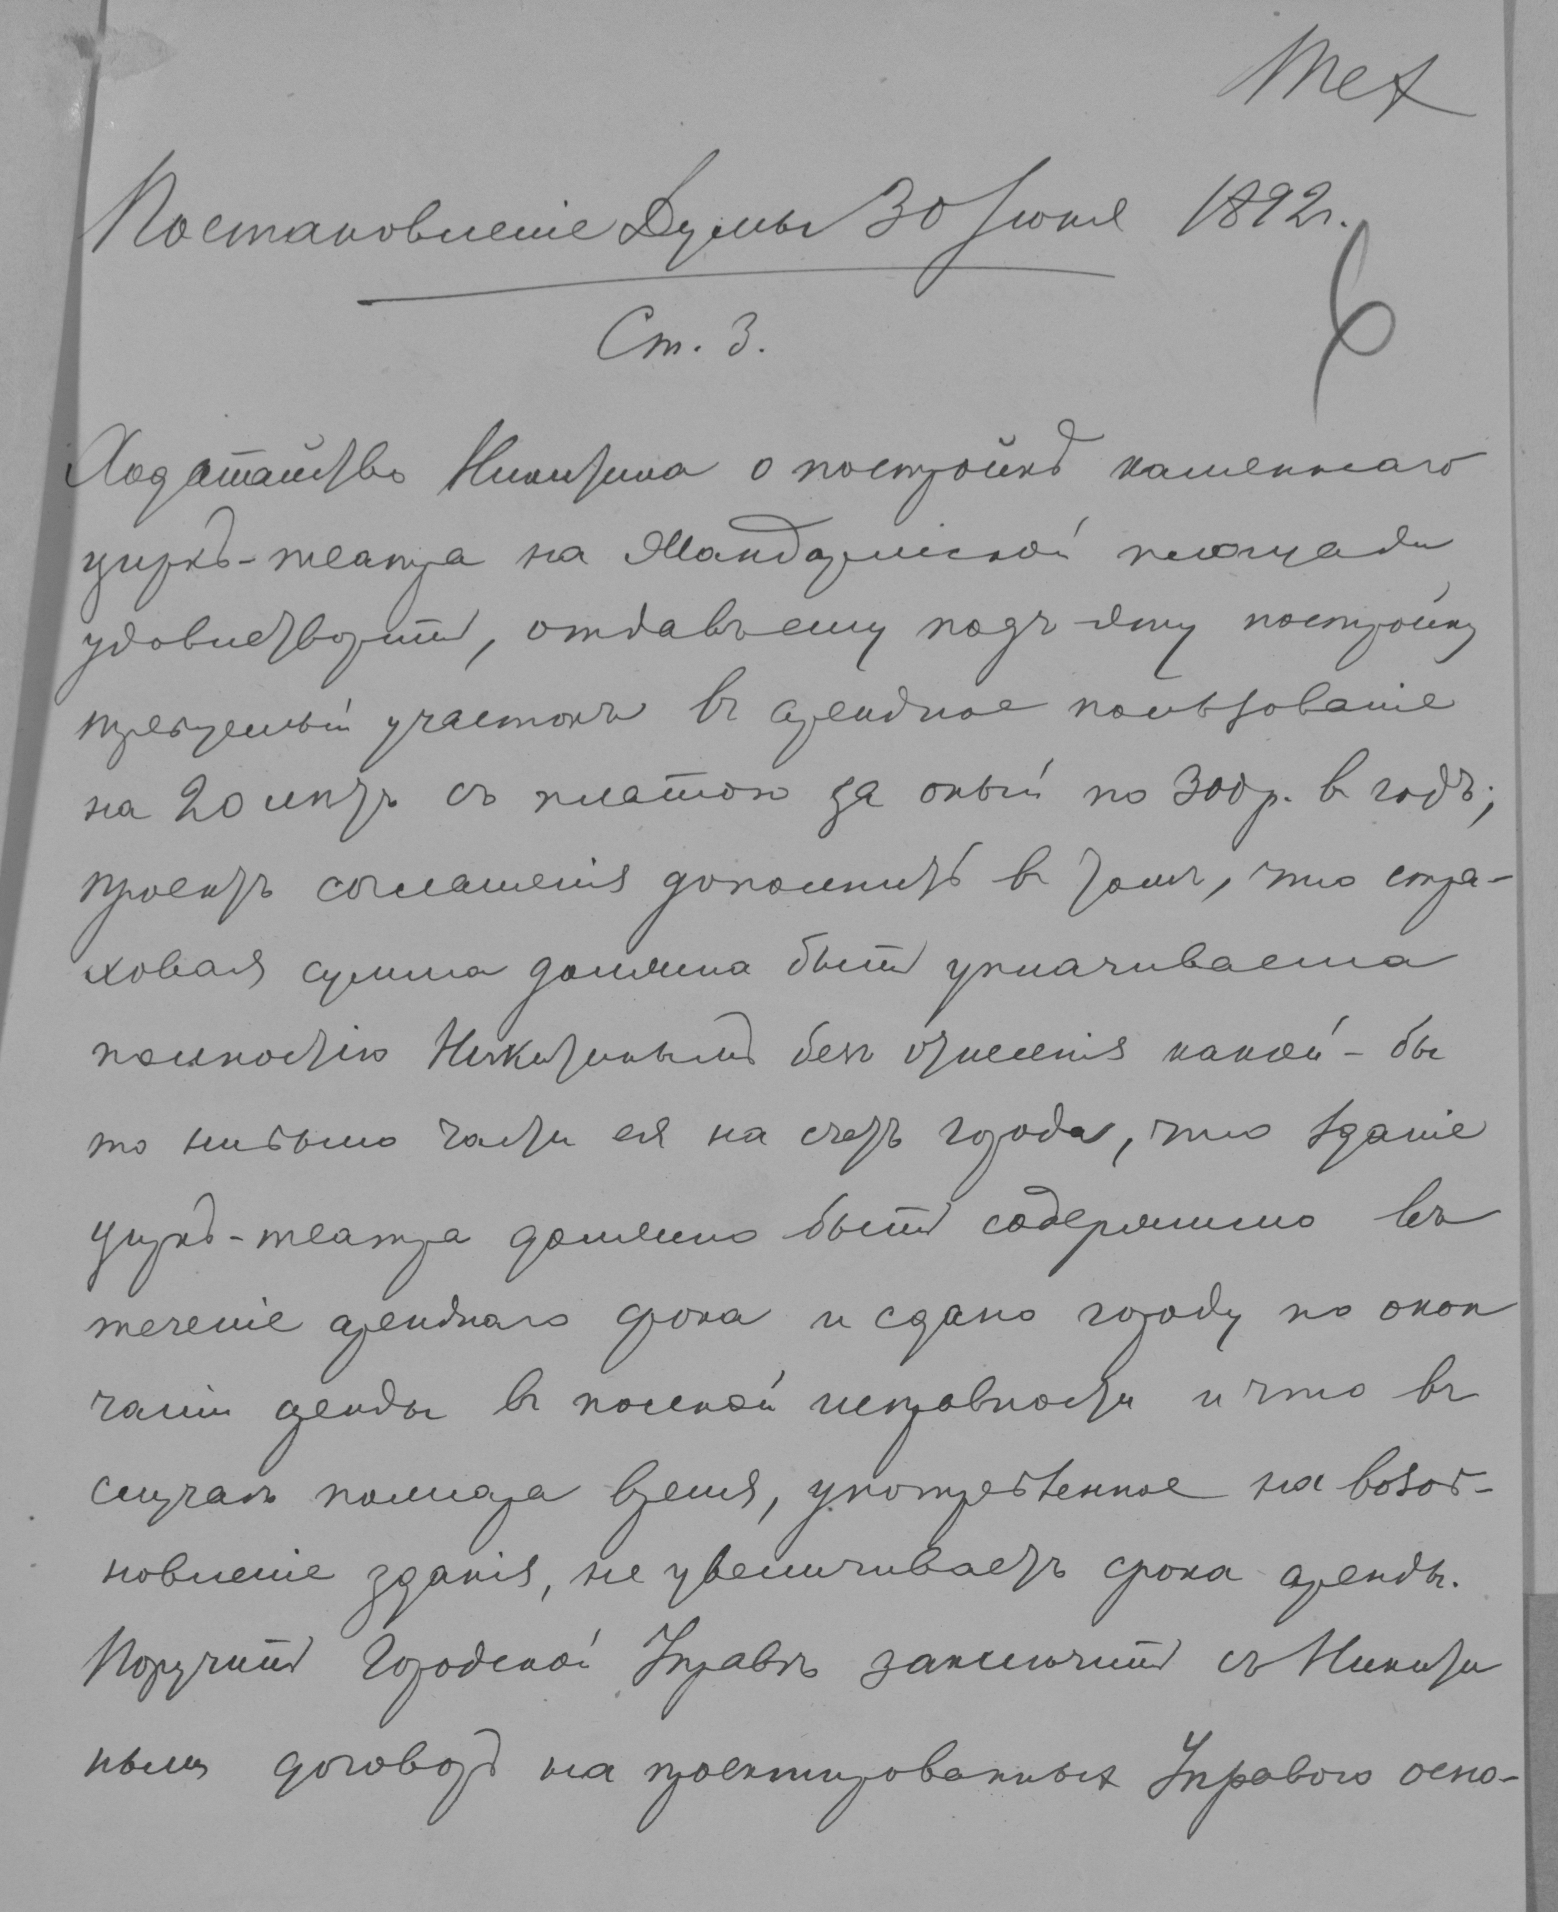 Тех
Постановленіе Думы 30 Іюня 1892 г.
6
Ст. 3.
Ходатайство Никитина о постройкѣ каменнаго
циркъ-театра на Жандармской площади
удовлетворить, отдавъ ему подъ эту постройку
требуемый участокъ въ арендное пользованіе
на 20 лѣтъ съ платою за оный по 300 р. въ годъ;
проектъ соглашенія дополнить въ томъ, что стра-
ховая сумма должна быть уплачиваема
полностію Никитинымъ безъ отнесенія какой-бы
то нибыло части ея на счетъ города, что зданіе
циркъ-театра должно быть содержимо въ
теченіе аренднаго срока и сдано городу по окон
чаніи аренды въ полной исправности и что въ
случаѣ пожара время, употребленное на возоб-
новленіе зданія, не увеличиваетъ срока аренды.
Поручить Городской Управѣ заключить съ Никити
нымъ договоръ на проектированныхъ Управою осно-